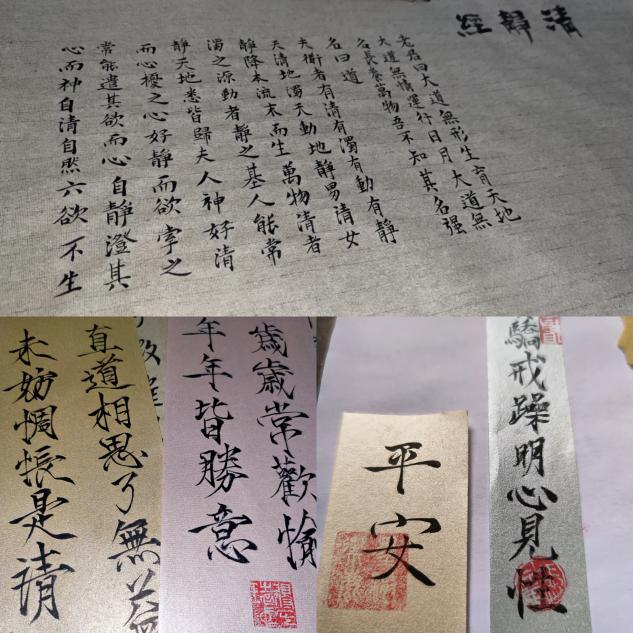 清靜經
老君曰大道無形生育天地
大道無情運行日月大道無
名長養萬物吾不知其名强
名曰道
夫衜者有清有濁有動有靜
天清地濁天動地靜男清女
靜降本流末而生萬物清者
濁之源動者靜之基人能常
靜天地悉皆歸夫人神好清
而心擾之心好靜而欲牽之
常能遣其欲而心自靜澄其
心而神自清自然六欲不生
直道相思了無益
未妨惆悵是清
歲歲常歡愉
年年皆勝意
平安
驕戒躁明心見性